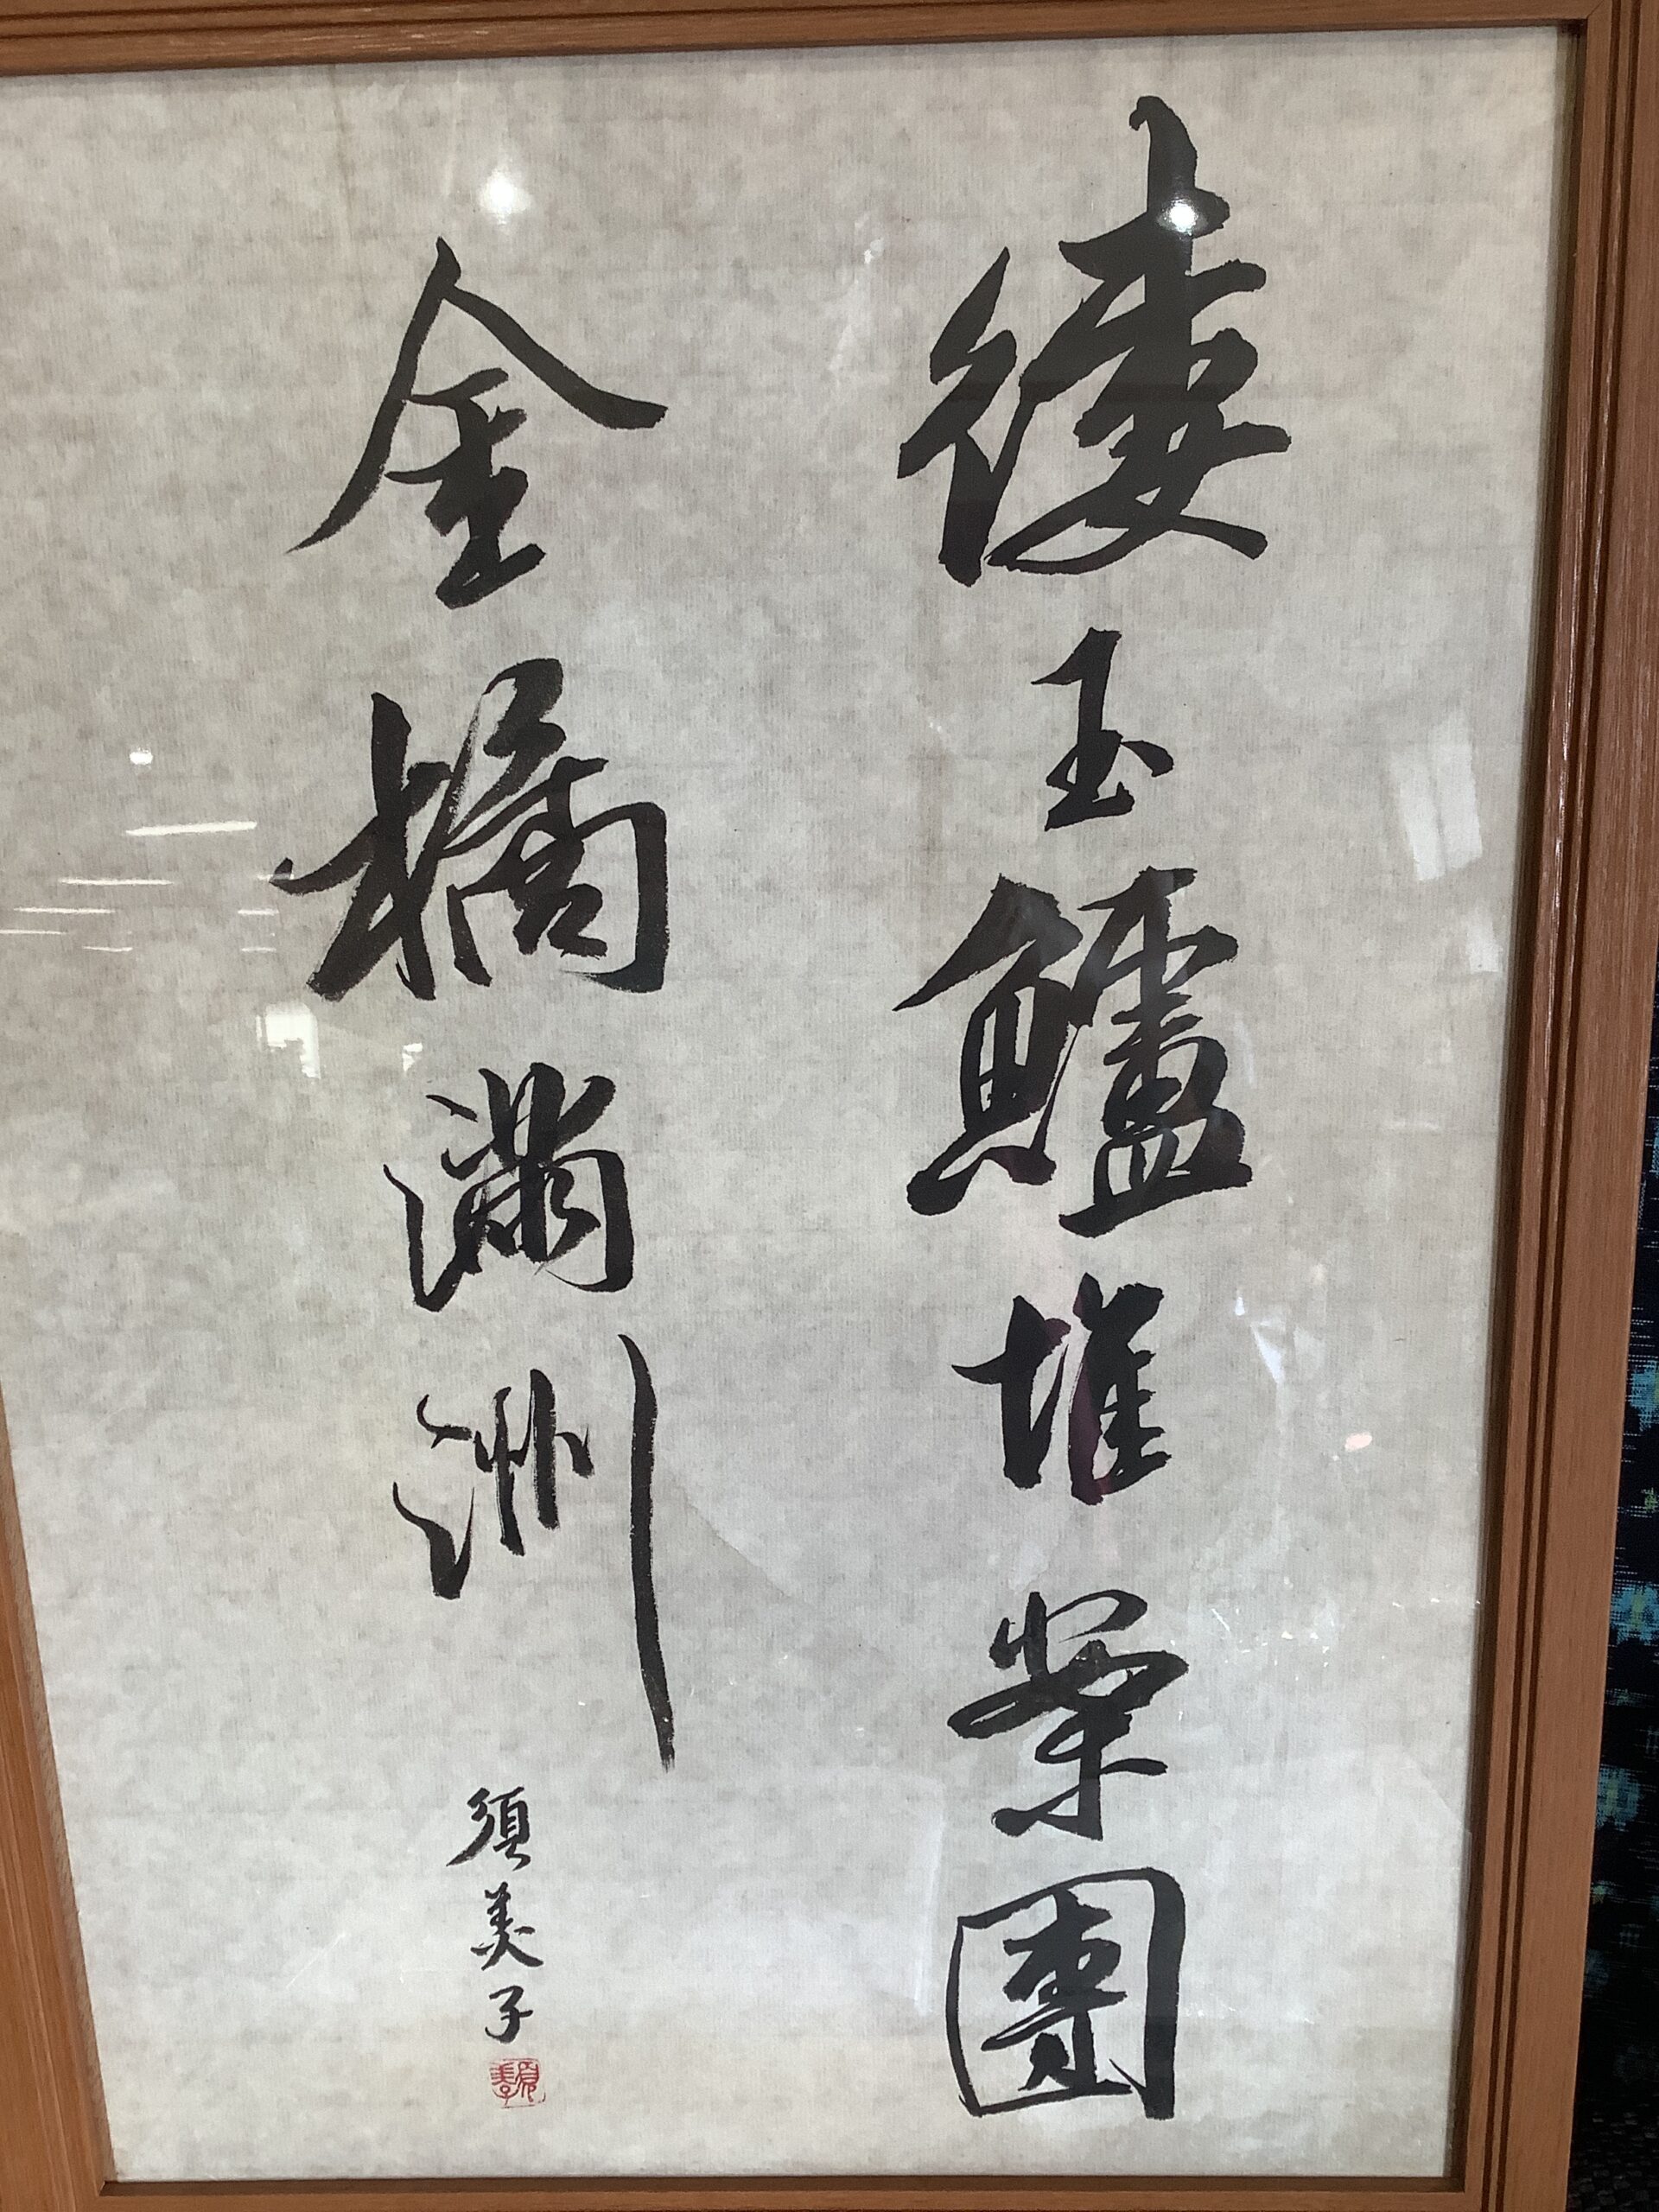 縷玉鱸堆案團
金橘滿洲
須美子